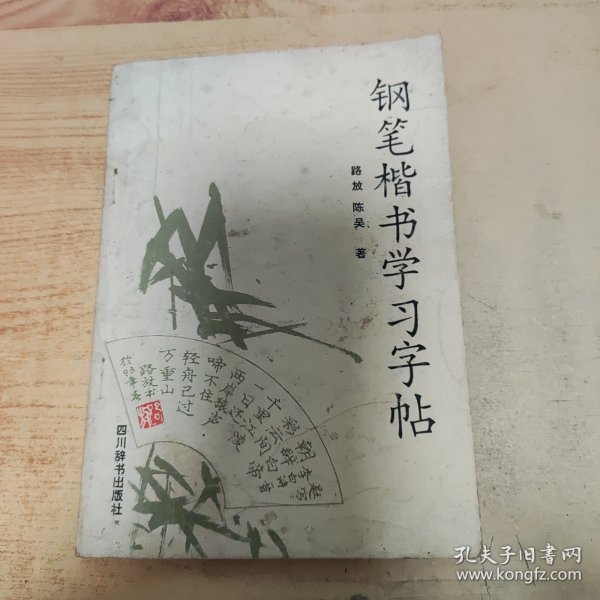 钢笔楷书学习字帖
路放 陈昊 著
朝辞白帝
彩云间
千里江陵
一日还
两岸猿声
啼不住
轻舟已过
万重山
路放书
四川辞书出版社
孔夫子旧书网
www.kongfz.com